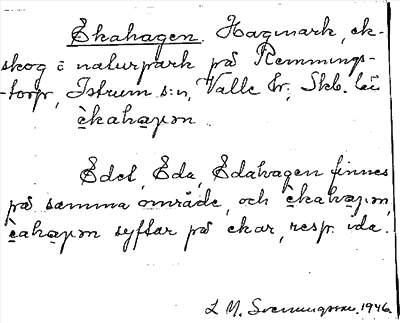 Ekahagen. Hagmark, ek-
skog i naturpark på Remmings-
-torp, Istrum s:n, Valle hr, Skb. län
èkahaɡən.
Edet, Eda, Edahagen finnes
på samma område, och èkahaɡən,
èahaɡən syftar på ekar, resp. ida.
L M. Svenungsson. 1946.